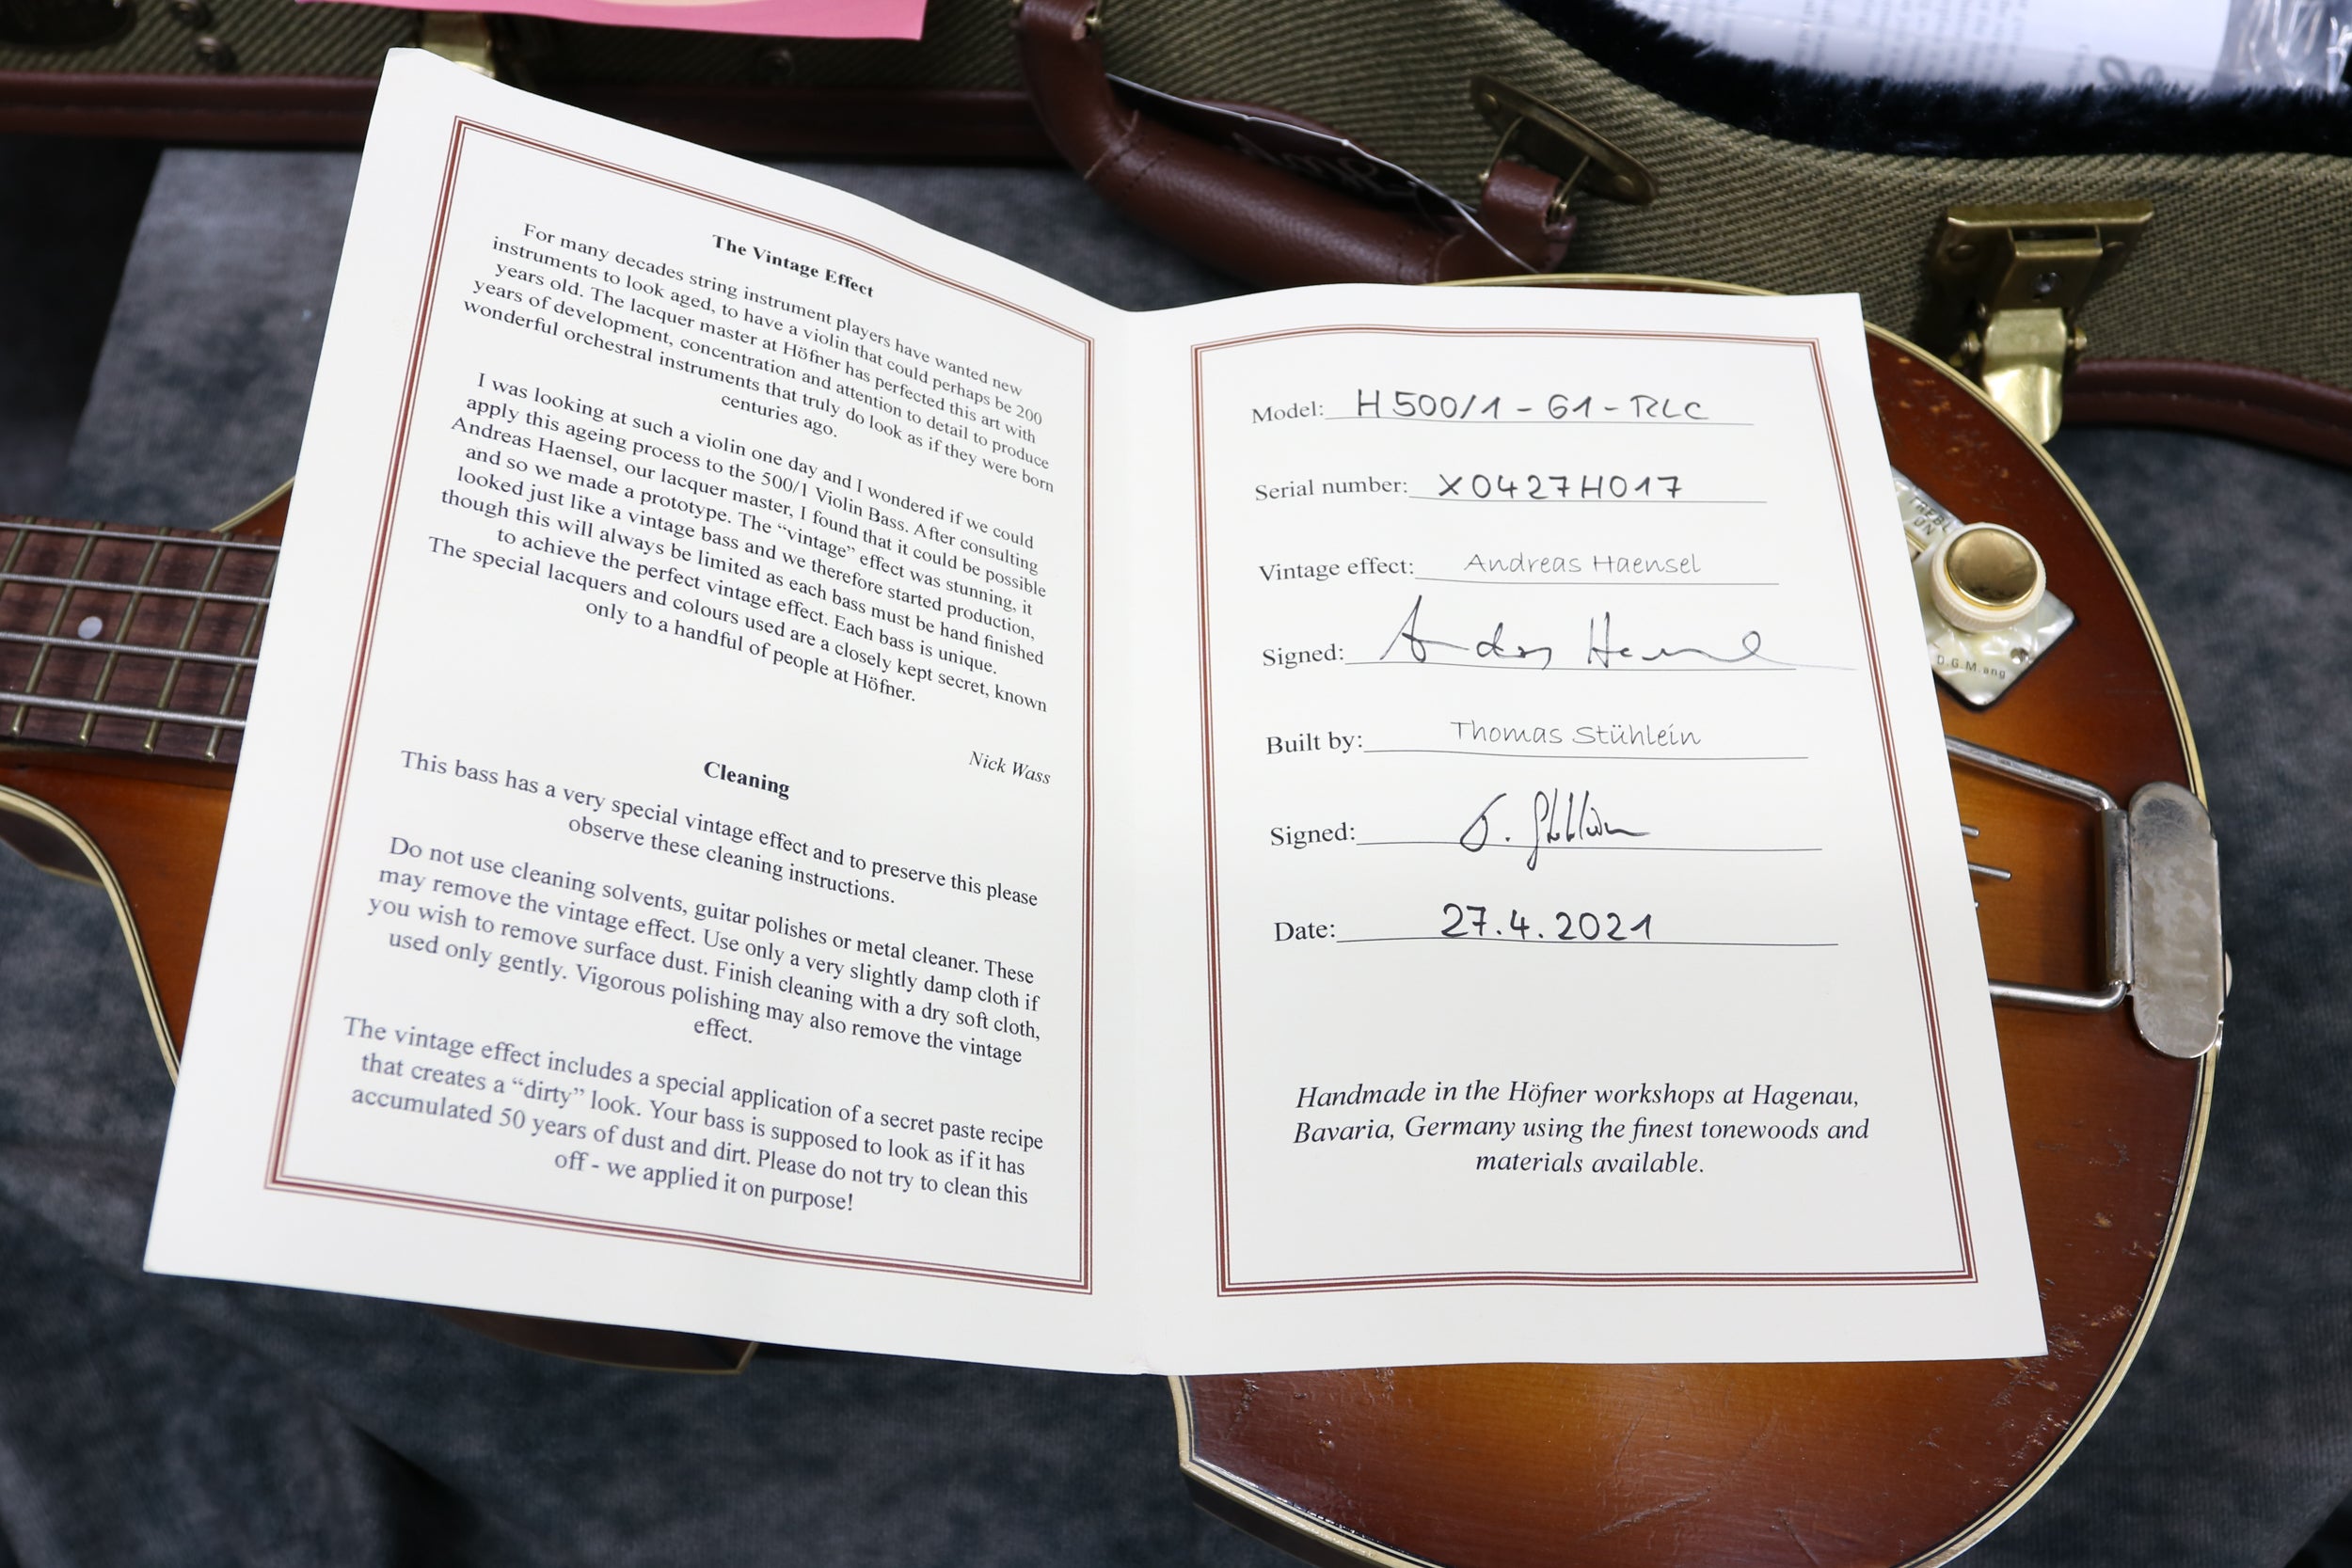 The Vintage Effect
For many decades string instrument players have wanted new
instruments to look aged, to have a violin that could perhaps be 200
years old. The lacquer master at Höfner has perfected this art with
years of development, concentration and attention to detail to produce
wonderful orchestral instruments that truly do look as if they were born
centuries ago.
I was looking at such a violin one day and I wondered if we could
apply this ageing process to the 500/1 Violin Bass. After consulting
Andreas Haensel, our lacquer master, I found that it could be possible
and so we made a prototype. The “vintage” effect was stunning, it
looked just like a vintage bass and we therefore started production,
though this will always be limited as each bass must be hand finished
to achieve the perfect vintage effect. Each bass is unique.
The special lacquers and colours used are a closely kept secret, known
only to a handful of people at Höfner.
Nick Wass
Cleaning
This bass has a very special vintage effect and to preserve this please
observe these cleaning instructions.
Do not use cleaning solvents, guitar polishes or metal cleaner. These
may remove the vintage effect. Use only a very slightly damp cloth if
you wish to remove surface dust. Finish cleaning with a dry soft cloth,
used only gently. Vigorous polishing may also remove the vintage
effect.
The vintage effect includes a special application of a secret paste recipe
that creates a “dirty” look. Your bass is supposed to look as if it has
accumulated 50 years of dust and dirt. Please do not try to clean this
off - we applied it on purpose!
Model: H500/1 - 61 - RLC
Serial number: X0427H017
Vintage effect: Andreas Haensel
Signed:
Built by: Thomas Stühlein
Signed:
Date: 27.4.2021
Handmade in the Höfner workshops at Hagenau,
Bavaria, Germany using the finest tonewoods and
materials available.
ON
D.G.M.ang